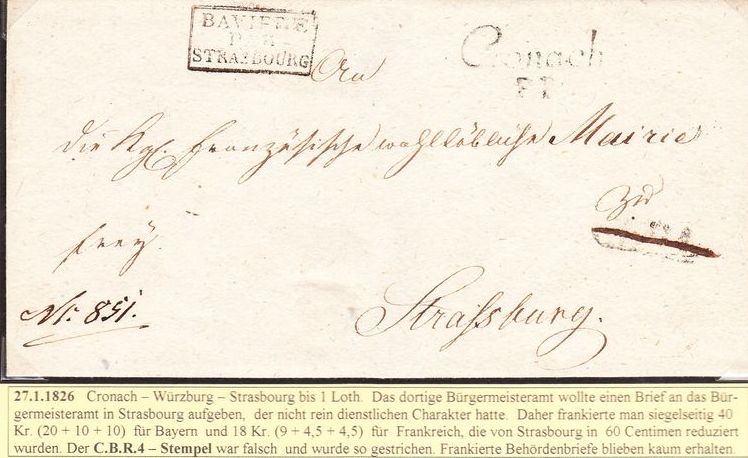 BAVIERE
PAR
STRASBOURG
Cronach
An
die Kgl. französische wohllöbliche Mairie
zu
frey
No: 851.
Strassburg.
27.1.1826 Cronach – Würzburg – Strasbourg bis 1 Loth. Das dortige Bürgermeisteramt wollte einen Brief an das Bür-
germeisteramt in Strasbourg aufgeben, der nicht rein dienstlichen Charakter hatte. Daher frankierte man siegelseitig 40
Kr. (20 + 10 + 10) für Bayern und 18 Kr. (9 + 4,5 + 4,5) für Frankreich, die von Strasbourg in 60 Centimen reduziert
wurden. Der C.B.R.4 – Stempel war falsch und wurde so gestrichen. Frankierte Behördenbriefe blieben kaum erhalten.